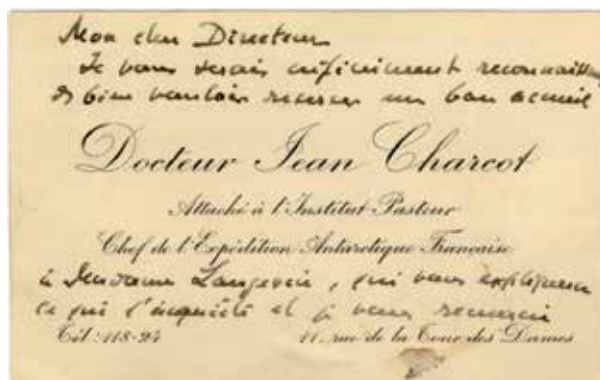 Mon cher Directeur
Je vous serais infiniment reconnaissant
de bien vouloir réserver un bon accueil
Docteur Jean Charcot
Attaché à l'Institut Pasteur
Chef de l'Expédition Antarctique Française
à Madame Langevin, qui vous expliquera
ce qui l'inquiète et je vous remercie
Tél: 118-24 11, rue de la Tour des Dames